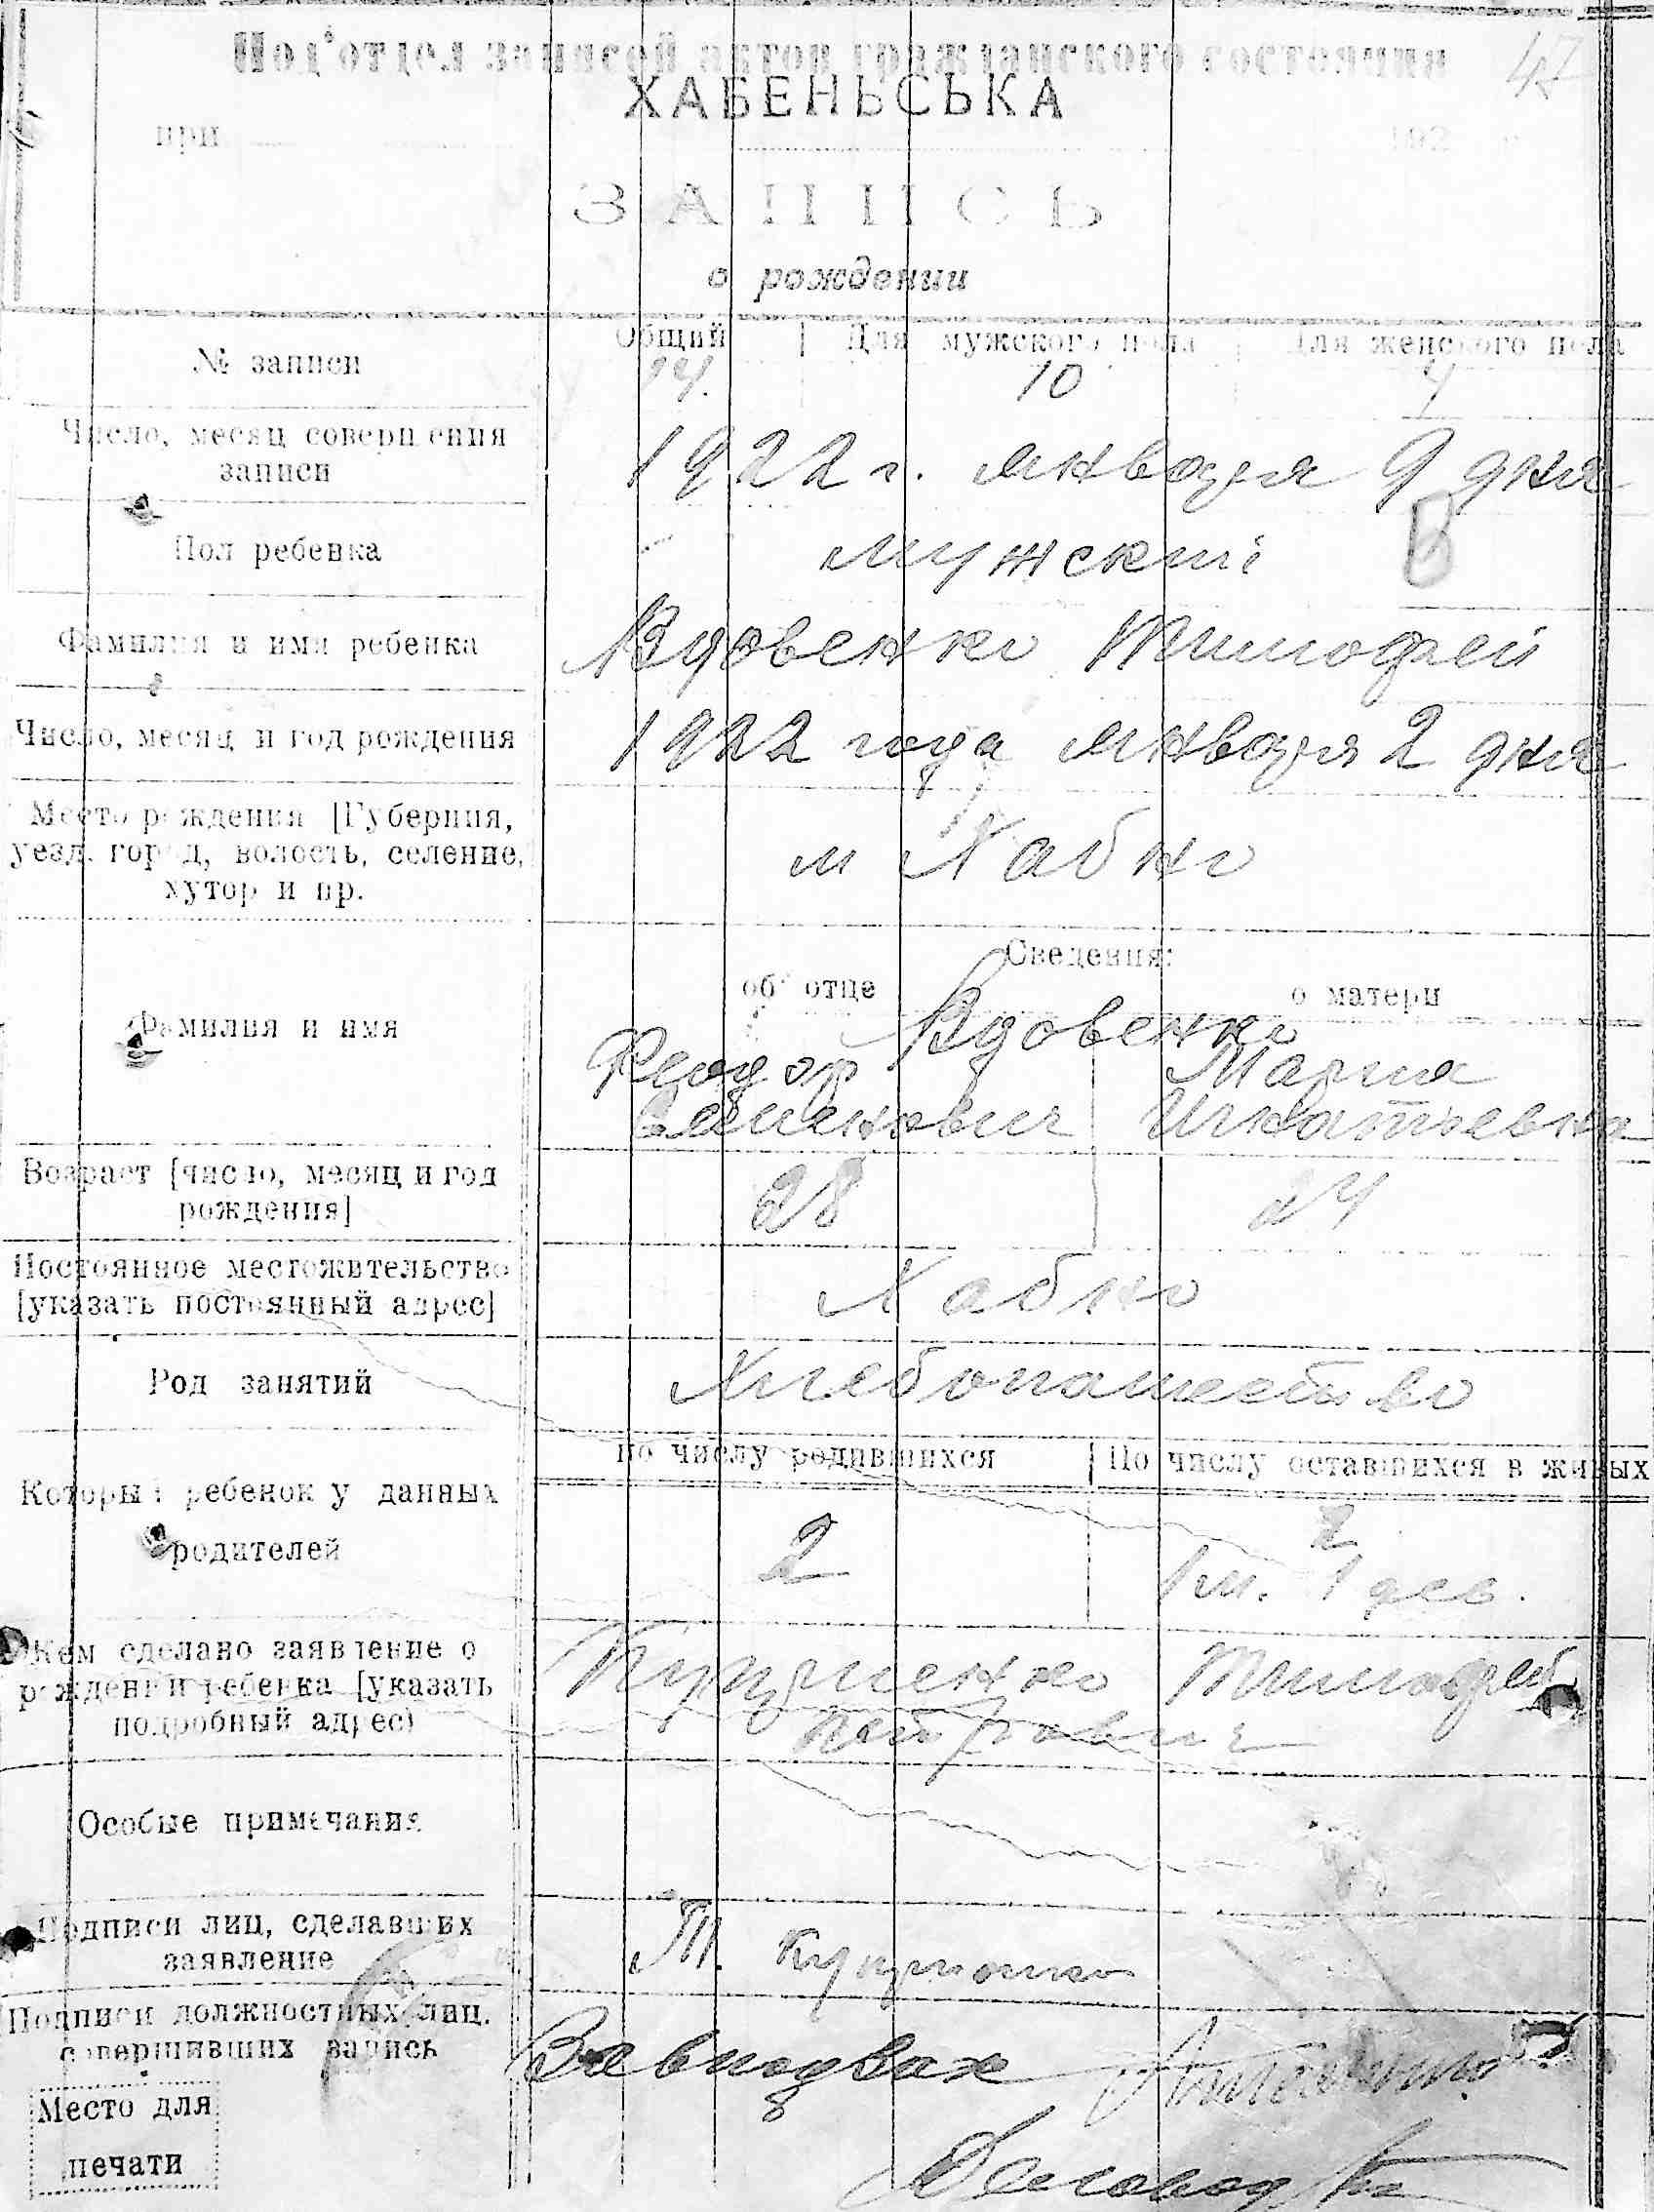 Под'отдел записей актов гражданского состояния
47
ХАБЕНЬСЬКА
при 192
ЗАПИСЬ
о рождении
Общий | Для мужского пола | Для женского пола
№ записи 14. 10 4
Число, месяц совершения 1922 г. января 9 дня
записи
Пол ребенка мужский
Фамилия и имя ребенка Вдовенко Тимофей
Число, месяц и год рождения 1922 года января 2 дня
Место рождения [Губерния,
уезд, город, волость, селение, м Хабно
хутор и пр.
Сведения:
об' отце о матери
Фамилия и имя Вдовенко
Феодор Мария
Семенович Игнатьевна
Возраст [число, месяц и год 28 24
рождения]
Постоянное местожительство Хабно
[указать постоянный адрес]
Род занятий Хлебопашество
По числу родившихся | По числу оставшихся в живых
Который ребенок у данных 2 2
родителей 1 м. 1 дев.
Кем сделано заявление о Тимофей
рождении ребенка [указать Петрович
подробный адрес)
Особые примечания
Подписи лиц, сделавших Т.
заявление
Подписи должностных лиц,
совершивших запись Завподзагс
Место для
печати Деловод